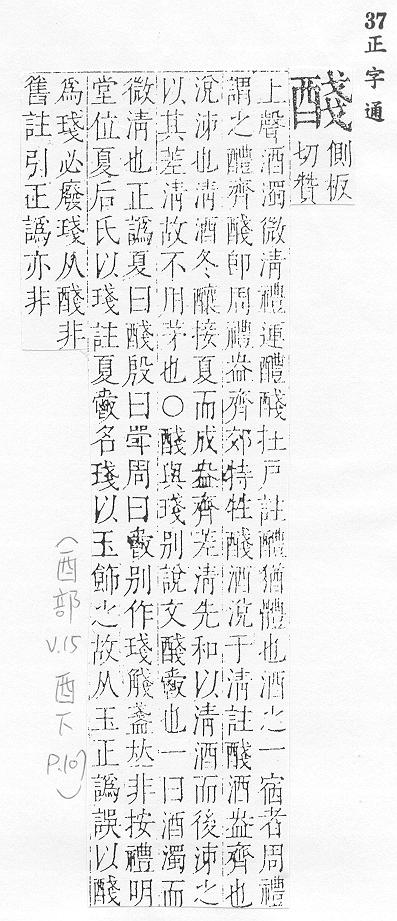 37 正字通
醆
側板
切贊
上聲酒濁微清禮運醴醆在戶註醴猶體也酒之一宿者周禮
謂之醴齊醆卽周禮盎齊郊特牲醆酒涗于清註醆酒盎齊也
涗泲也清酒冬釀接夏而成盎齊差清先和以清酒而後泲之
以其差清故不用茅也○醆與琖別說文醆爵也一曰酒濁而
微清也正譌夏曰醆殷曰斝周曰爵別作琖盞𠀤非按禮明
堂位夏后氏以琖註夏爵名琖以玉飾之故从玉正譌誤以醆
爲琖必廢琖从醆非
舊註引正譌亦非
(酉部 V.15 酉下